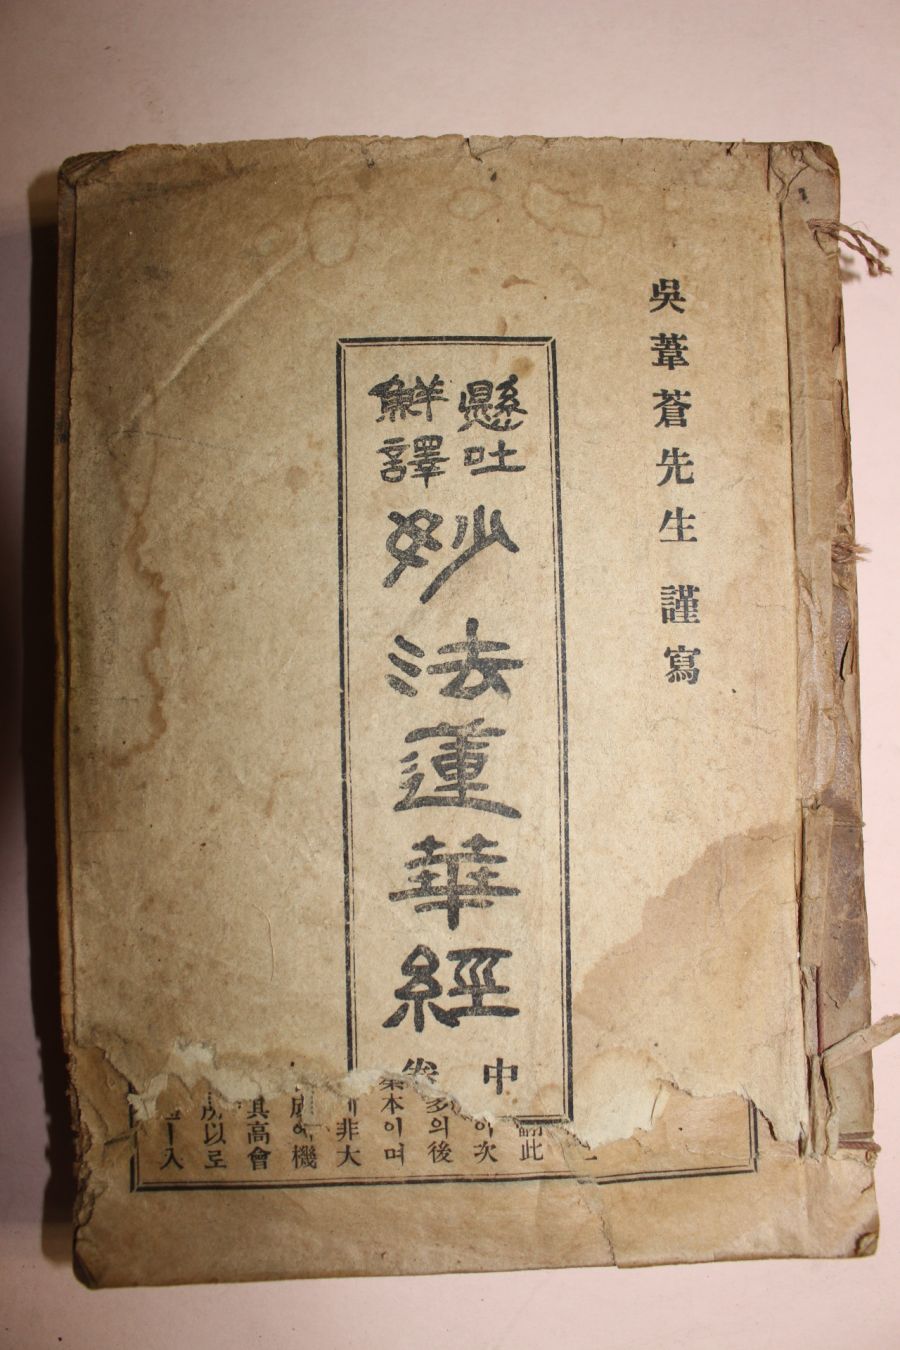 吳葦蒼先生 謹寫
懸吐
鮮譯
妙法蓮華經
中
此
이次
의後
本이며
非大
機
其高會
以로
入